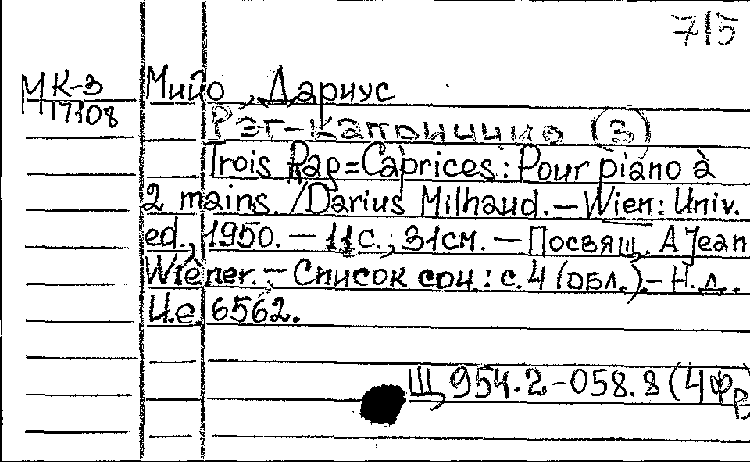 715
МК-3 Мийо, Дариус
17108
Рэг-каприччио (3)
Trois Rag=Caprices: Pour piano à
2 mains. /Darius Milhaud. — Wien: Univ.
ed., 1950. — 11с.; 31см. — Посвящ. A Jean
Wiéner. — Список соч.: с. 4 (обл.). — Н.д.
U.e. 6562.
Щ 954.2-058.8 (4Фр